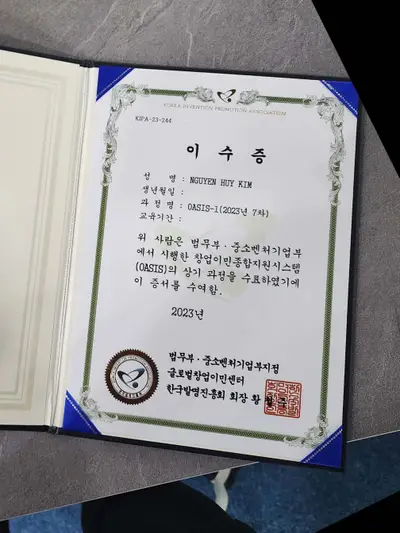 KOREA INVENTION PROMOTION ASSOCIATION
KIPA-23-244
이 수 증
성 명 : NGUYEN HUY KIM
생년월일 :
과 정 명 : OASIS-1(2023년 7차)
교육기간 :
위 사람은 법무부·중소벤처기업부
에서 시행한 창업이민종합지원시스템
(OASIS)의 상기 과정을 수료하였기에
이 증서를 수여함.
2023년
법무부·중소벤처기업부지정
글로벌창업이민센터
한국발명진흥회 회장 황